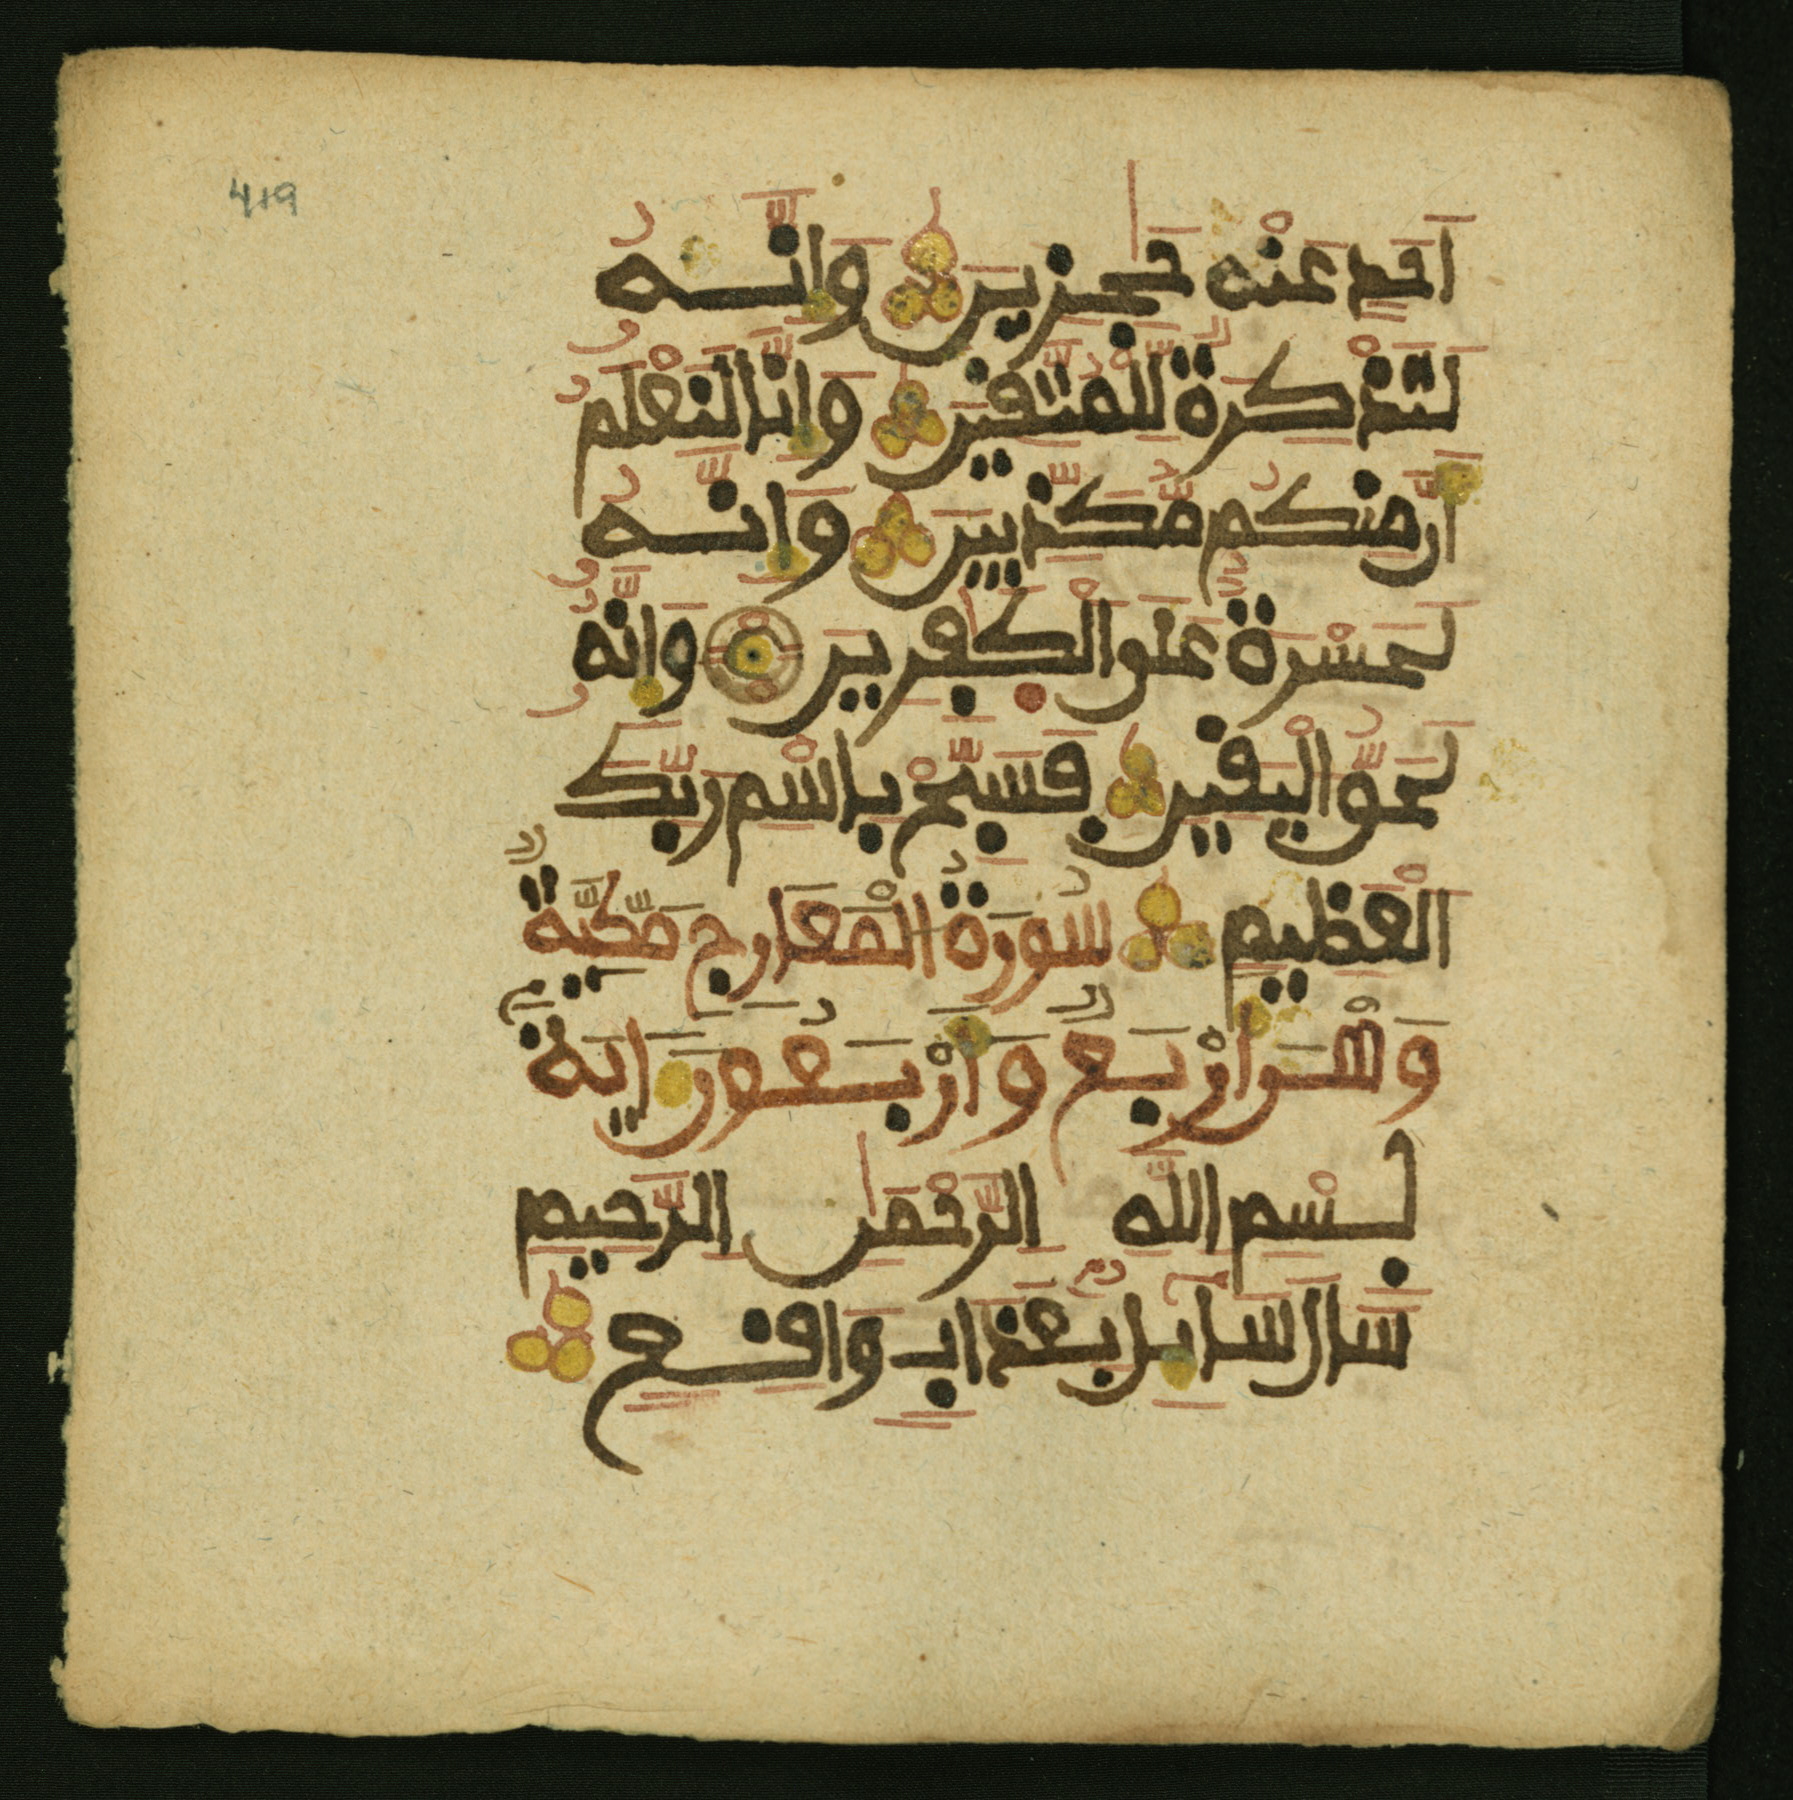 419
اَحَدٍ عَنْهُ حَٰجِزِينَ وَإِنَّهُ
لَتَذْكِرَةٌ لِّلْمُتَّقِينَ وَإِنَّا لَنَعْلَمُ
أَنَّ مِنكُم مُّكَذِّبِينَ وَإِنَّهُ
لَحَسْرَةٌ عَلَى الْكَٰفِرِينَ وَإِنَّهُ
لَحَقُّ الْيَقِينِ فَسَبِّحْ بِاسْمِ رَبِّكَ
الْعَظِيمِ سُورَةُ الْمَعَارِجِ مَكِّيَّةٌ
وَهْىَ أَرْبَعٌ وَأَرْبَعُونَ ايَةً
بِسْمِ اللَّهِ الرَّحْمَٰنِ الرَّحِيمِ
سَالَ سَآئِلُۢ بِعَذَابٍ وَاقِعٍ